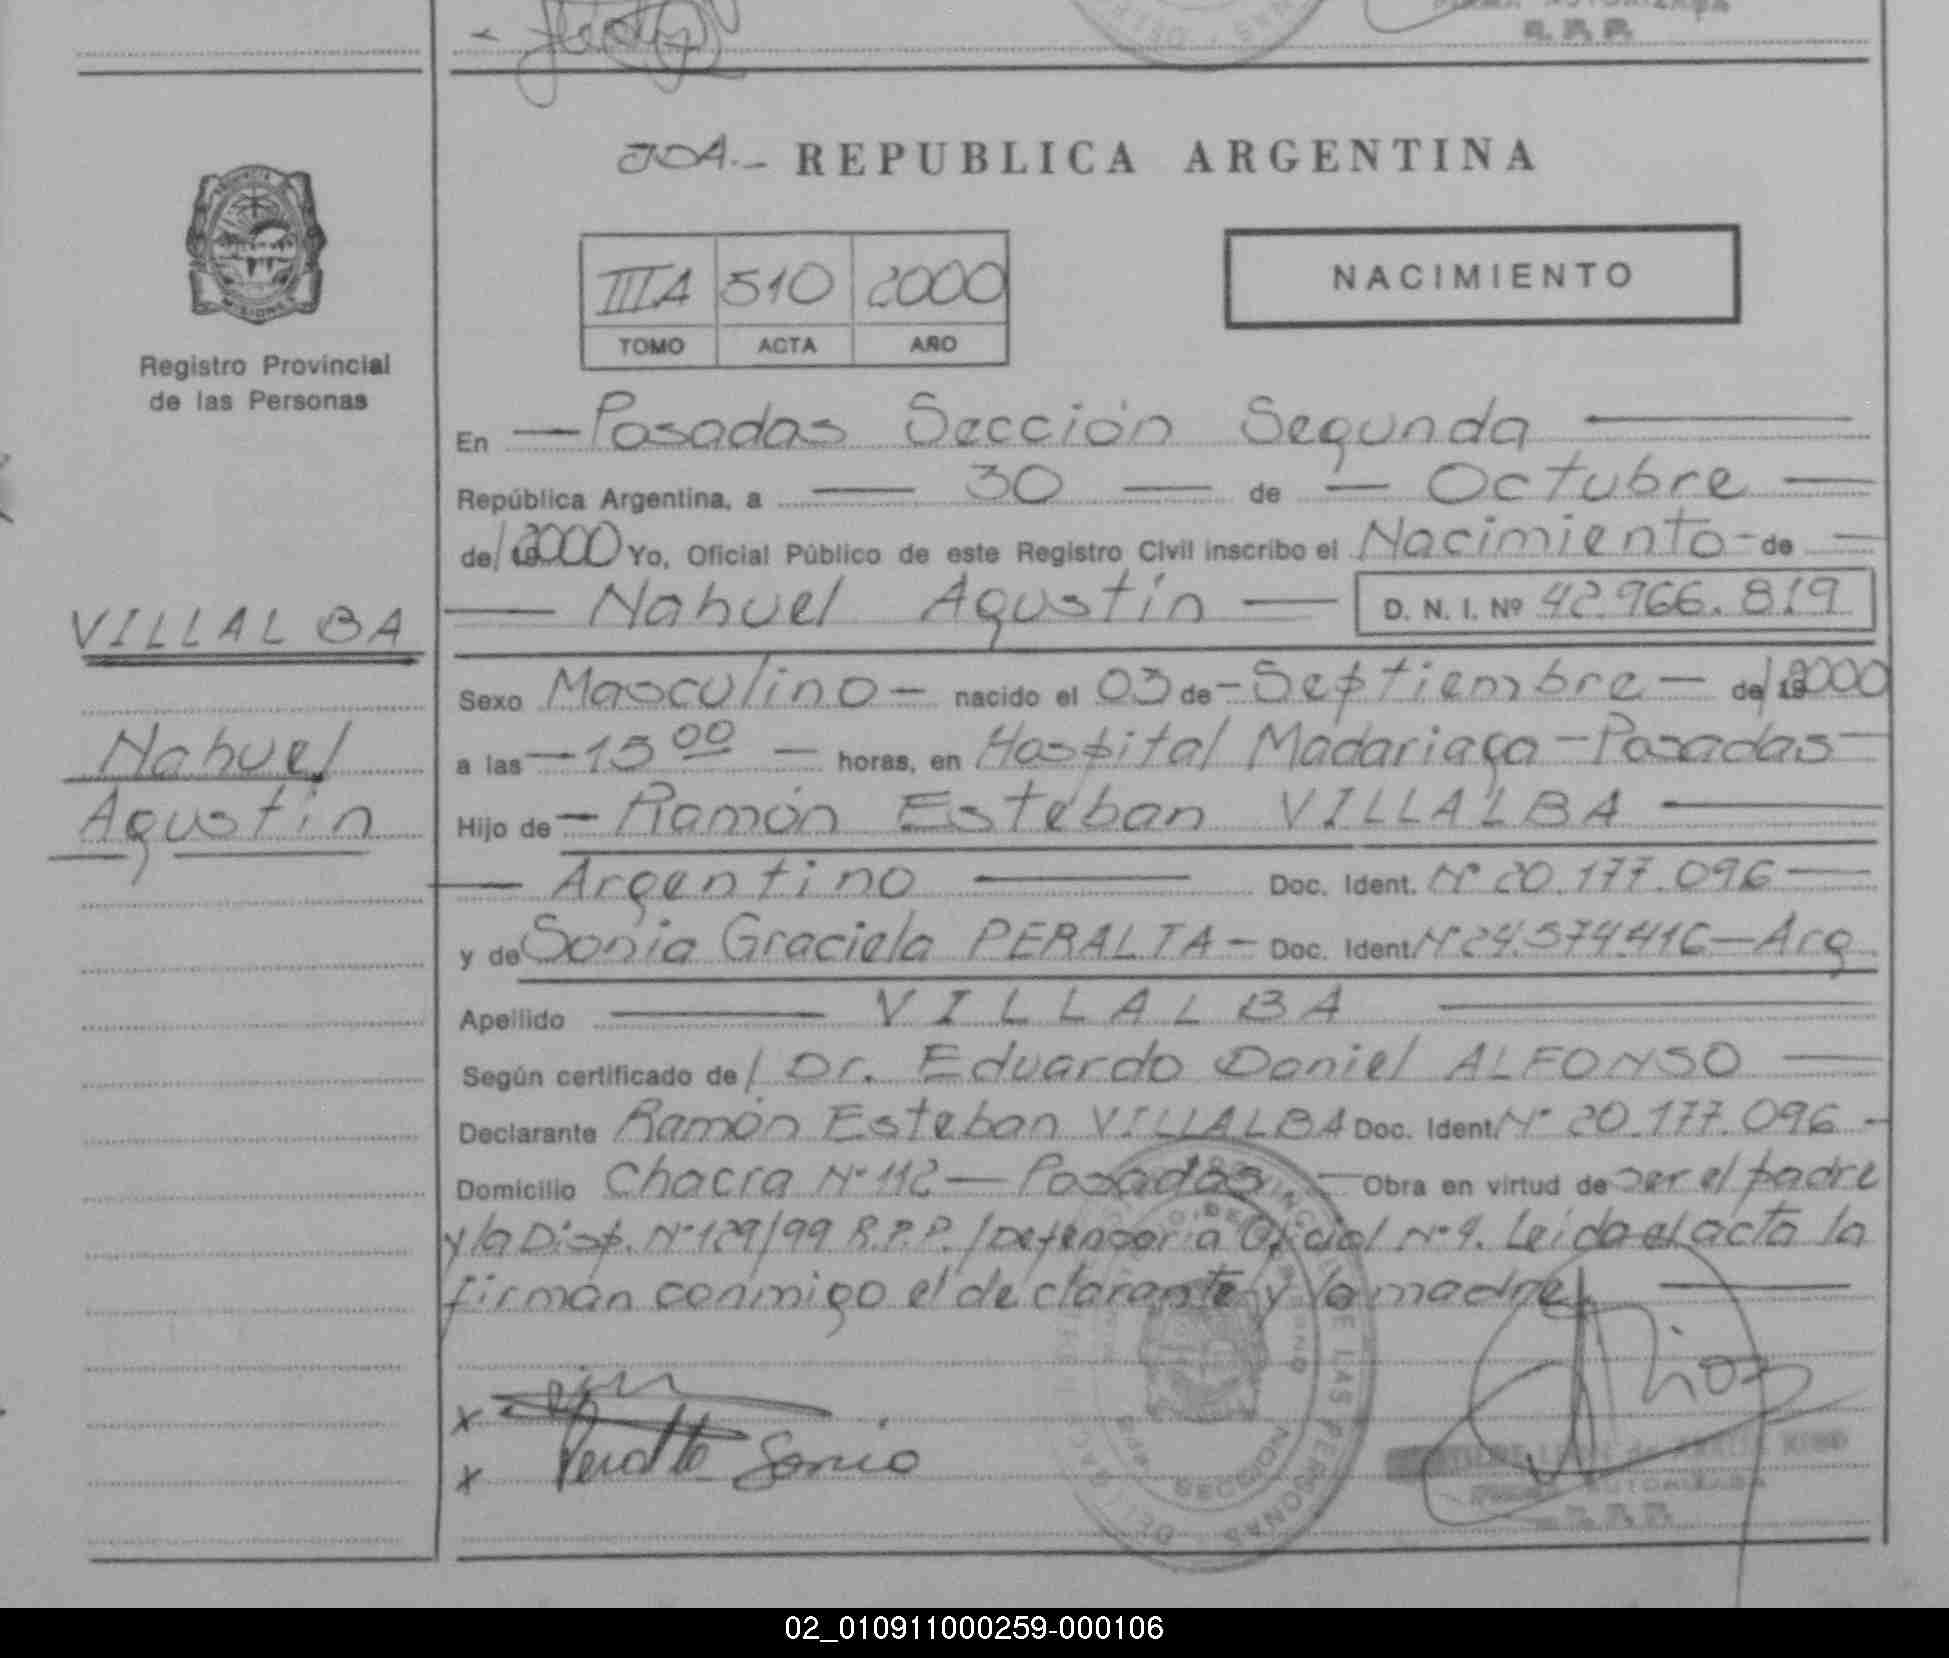 R. P. P.
JOA.- REPUBLICA ARGENTINA
MISIONES
Registro Provincial
de las Personas
IIIA 510 2000
TOMO ACTA AÑO
NACIMIENTO
En — Posadas Sección Segunda —
República Argentina, a — 30 — de — Octubre —
de/ 19 2000 Yo, Oficial Público de este Registro Civil inscribo el Nacimiento - de —
VILLALBA
— Nahuel Agustín — D. N. I. Nº 42.966.819
Sexo Masculino — nacido el 03 de - Septiembre — de/ 19 2000
Nahuel
a las — 15 00 — horas, en Hospital Madariaga - Posadas
Agustín
Hijo de — Ramón Esteban VILLALBA —
— Argentino — Doc. Ident. Nº 20.177.096 —
y de Sonia Graciela PERALTA - Doc. Ident Nº 24.574.416 — Arg
Apellido — VILLALBA —
Según certificado de / Dr. Eduardo Daniel ALFONSO —
Declarante Ramón Esteban VILLALBA Doc. Ident. Nº 20.177.096 -
Domicilio Chacra Nº 112 — Posadas — Obra en virtud de ser el padre
y la Disp. Nº 129/99 R.P.P. / Defensoría Oficial Nº 4. Leída el acta la
firman conmigo el declarante y la madre. —
x
x Peralta Sonia
DE LAS PERSONAS
SECCION
AUTORIZADA
R. P. P.
02_010911000259-000106